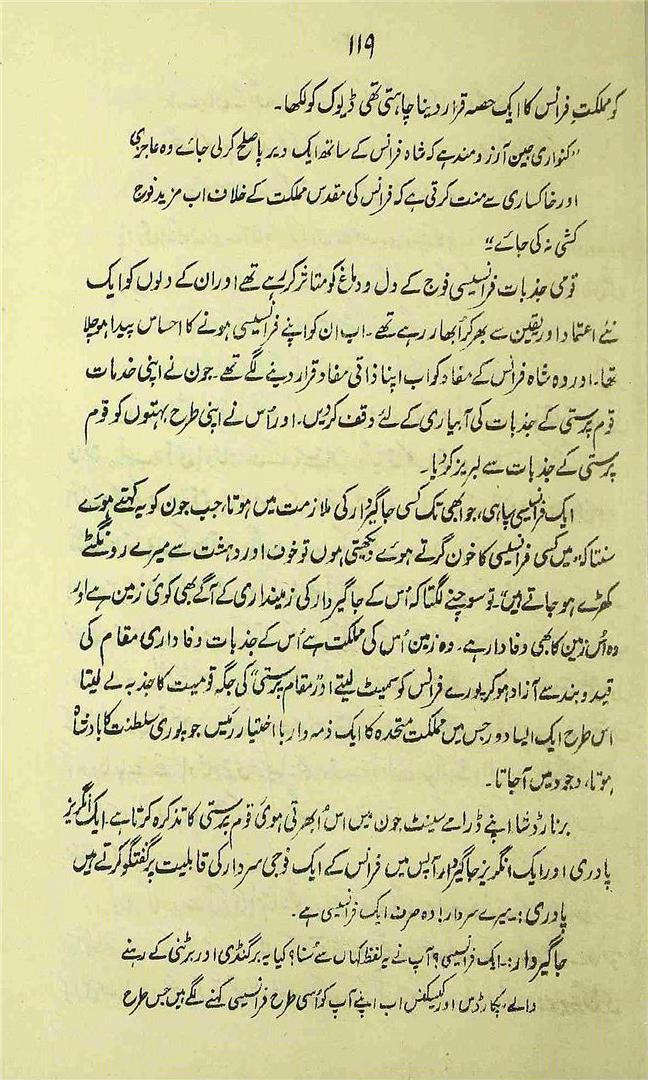 ۱۱۹
کو مملکتِ فرانس کا ایک حصہ قرار دینا چاہتی تھی ڈیوک کو لکھا۔
"کنواری جین آرزو مند ہے کہ شاہ فرانس کے ساتھ ایک دیر پا صلح کر لی جائے وہ عاجزی
اور خاکساری سے منت کرتی ہے کہ فرانس کی مقدس مملکت کے خلاف اب مزید فوج
کشی نہ کی جائے"
قومی جذبات فرانسیسی فوج کے دل و دماغ کو متاثر کر رہے تھے اور ان کے دلوں کو ایک
نئے اعتماد اور یقین سے بھر کر ابھار رہے تھے۔ اب ان کو اپنے فرانسیسی ہونے کا احساس پیدا ہو چلا
تھا۔ اور وہ شاہ فرانس کے مفاد کو اب اپنا ذاتی مفاد قرار دینے لگے تھے۔ جون نے اپنی خدمات
قوم پرستی کے جذبات کی آبیاری کے لئے وقف کر دیں۔ اور اُس نے اپنی طرح بہتوں کو قوم
پرستی کے جذبات سے لبریز کر دیا۔
ایک فرانسیسی سپاہی، جو ابھی تک کسی جاگیردار کی ملازمت میں ہوتا، جب جون کو یہ کہتے ہوئے
سنتا کہ "میں کسی فرانسیسی کا خون گرتے ہوئے دیکھتی ہوں تو خوف اور دہشت سے میرے رونگٹے
کھڑے ہو جاتے ہیں" تو سوچنے لگتا کہ اُس کے جاگیردار کی زمینداری کے آگے بھی کوئی زمین ہے اور
وہ اُس زمین کا بھی وفادار ہے۔ وہ زمین اُس کی مملکت ہے اُس کے جذبات وفاداری مقام کی
قید و بند سے آزاد ہو کر پورے فرانس کو سمیٹ لیتے اور "مقام پرستی" کی جگہ قومیت کا جذبہ لے لیتا
اس طرح ایک ایسا دور جس میں مملکت متحدہ کا ایک ذمہ دار با اختیار رئیس جو پوری سلطنت کا بادشاہ
ہوتا، وجود میں آجاتا۔
برنارڈشا اپنے ڈرامے سینٹ جون میں اس ابھرتی ہوئی قوم پرستی کا تذکرہ کرتا ہے۔ ایک انگریز
پادری اور ایک انگریز جاگیردار آپس میں فرانس کے ایک فوجی سردار کی قابلیت پر گفتگو کرتے ہیں
پادری :۔ میرے سردار! وہ صرف ایک فرانسیسی ہے۔
جاگیردار :۔ ایک فرانسیسی؟ آپ نے یہ لفظ کہاں سے سُنا؟ کیا یہ برگنڈی اور برٹنی کے رہنے
والے، پکارڈس اور گیسکنس اب اپنے آپ کو اسی طرح فرانسیسی کہنے لگے ہیں جس طرح